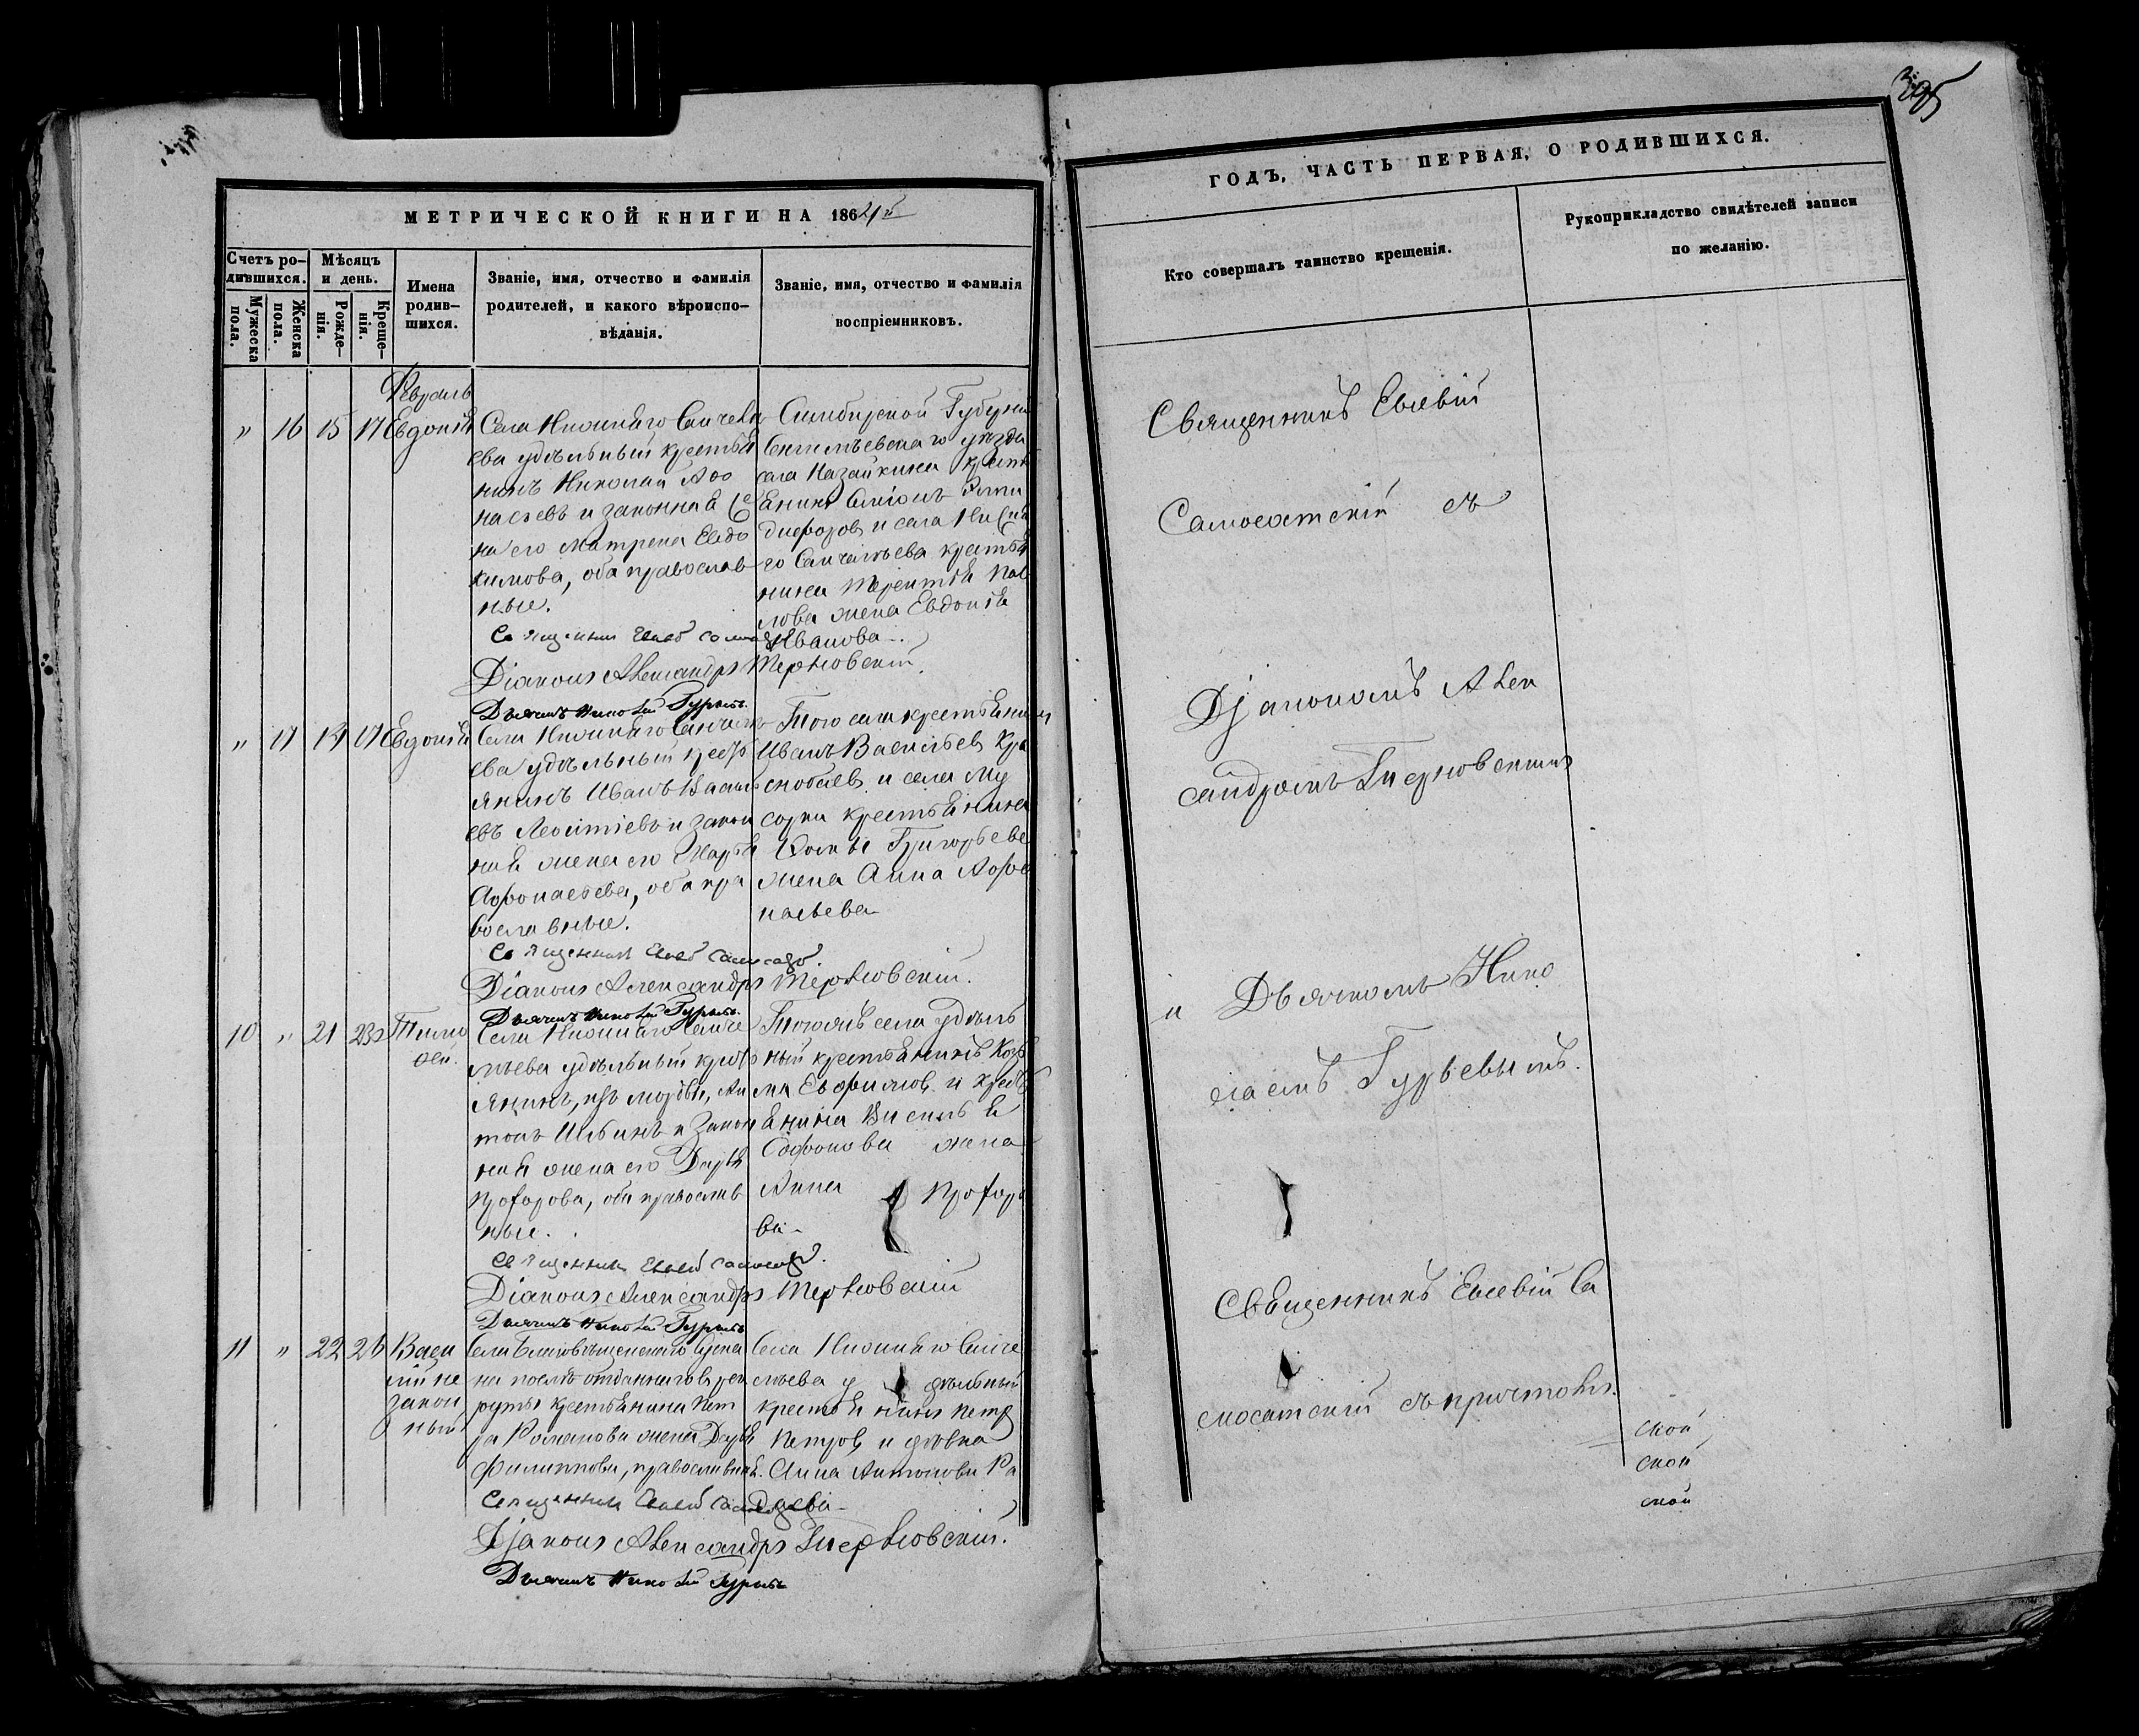 МЕТРИЧЕСКОЙ КНИГИ НА 1864й
Счетъ ро-
дившихся.
Мужеска
пола.
Женска
пола.
Мѣсяцъ
и день.
Рожде-
нія.
Креще-
нія.
Имена
родив-
шихся.
Званіе, имя, отчество и фамилія
родителей, и какого вѣроиспо-
вѣданія.
Званіе, имя, отчество и фамилія
воспріемниковъ.
Февраль
" 16 15 17 Евдокія
Села Нижняго Санчелѣ
ева удѣльный крестья
нинъ Николай Афо
насьевъ и законная
его Матрена Евдо
кимова, оба православ
ные.
Симбирской Губерніи
Сенгилѣевскаго уѣзда
села Назайкина крест
янинъ Симіонъ
и села Нижня
го Санчелѣева крестья
нина Терентія Пав
лова жена Евдокія
Иванова.
Священникъ
Діаконъ Александръ Терновскій.
Дьячекъ Николай Гурьевъ
" 17 17 Евдокія
Села Нижняго Санчелѣ
ева удѣльный крест
янинъ Иванъ Василь
евъ Леонтіевъ и закон
ная жена его Марья
Афонасьева, оба пра
вославные.
Того села крестьянинъ
Иванъ Васильевъ Кра
сnобаевъ и села Му
сорки крестьянина
Григорьева
жена Анна Афо
насьева
Священникъ
Діаконъ Александръ Терновскій.
Дьячекъ Николай Гурьевъ
10 " 21 23 Тимо
фей.
Села Нижняго Санче
лѣева удѣльный крест
янинъ, изъ мордвы, Ан
тонъ Ильинъ и закон
ная жена его Дарья
Прохорова, оба православ
ные.
Того же села удѣль
ный крестьянинъ Козь
ма Евфимов и крест
янина Василья
Софонова жена
Анна Прохоро
ва
Священникъ
Діаконъ Александръ Терновскій
Дьячекъ Николай Гурьевъ
11 " 22 Васи
лій не
закон
ный
Села Благовѣщенскаго
на отданнаго въ рек
руты крестьянина Пет
ра Романова жена Дарья
Филиппова, православная.
Села Нижняго Санче
лѣева удѣльный
крестьянинъ Петръ
Петров и дѣвка
Анна Антонова Ра
Священникъ
Діаконъ Александръ Терновскій.
Дьячекъ Николай Гурьевъ
ГОДЪ, ЧАСТЬ ПЕРВАЯ, О РОДИВШИХСЯ.
Кто совершалъ таинство крещенія.
Рукоприкладство свидѣтелей записи
по желанію.
Священникъ Евсевій
Самосатскій съ
Діакономъ Алек
сандромъ Терновскимъ
и Дьячкомъ Нико
лаемъ Гурьевымъ.
Священникъ Евсевій Са
мосатскій съ причтомъ.
ской
ской
ской